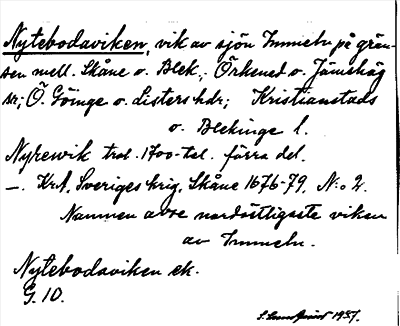 Nytebodaviken, vik av sjön Immeln på grän-
sen mell. Skåne o. Blek.; Örkened o. Jämshög
snr; Ö. Göinge o. Listers hdr; Kristianstads
o. Blekinge l.
Nyrewik trol. 1700-tal. förra del.
—. KrA, Sveriges krig, Skåne 1676-79, N:o 2.
Namnen avse nordöstligaste viken
av Immeln.
Nytebodaviken ek.
G. 10.
1937.